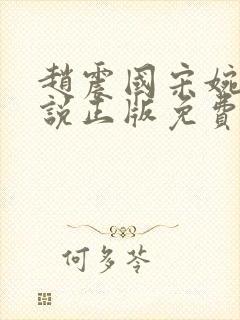 趙震國宋婉
說正版免費
何多苓